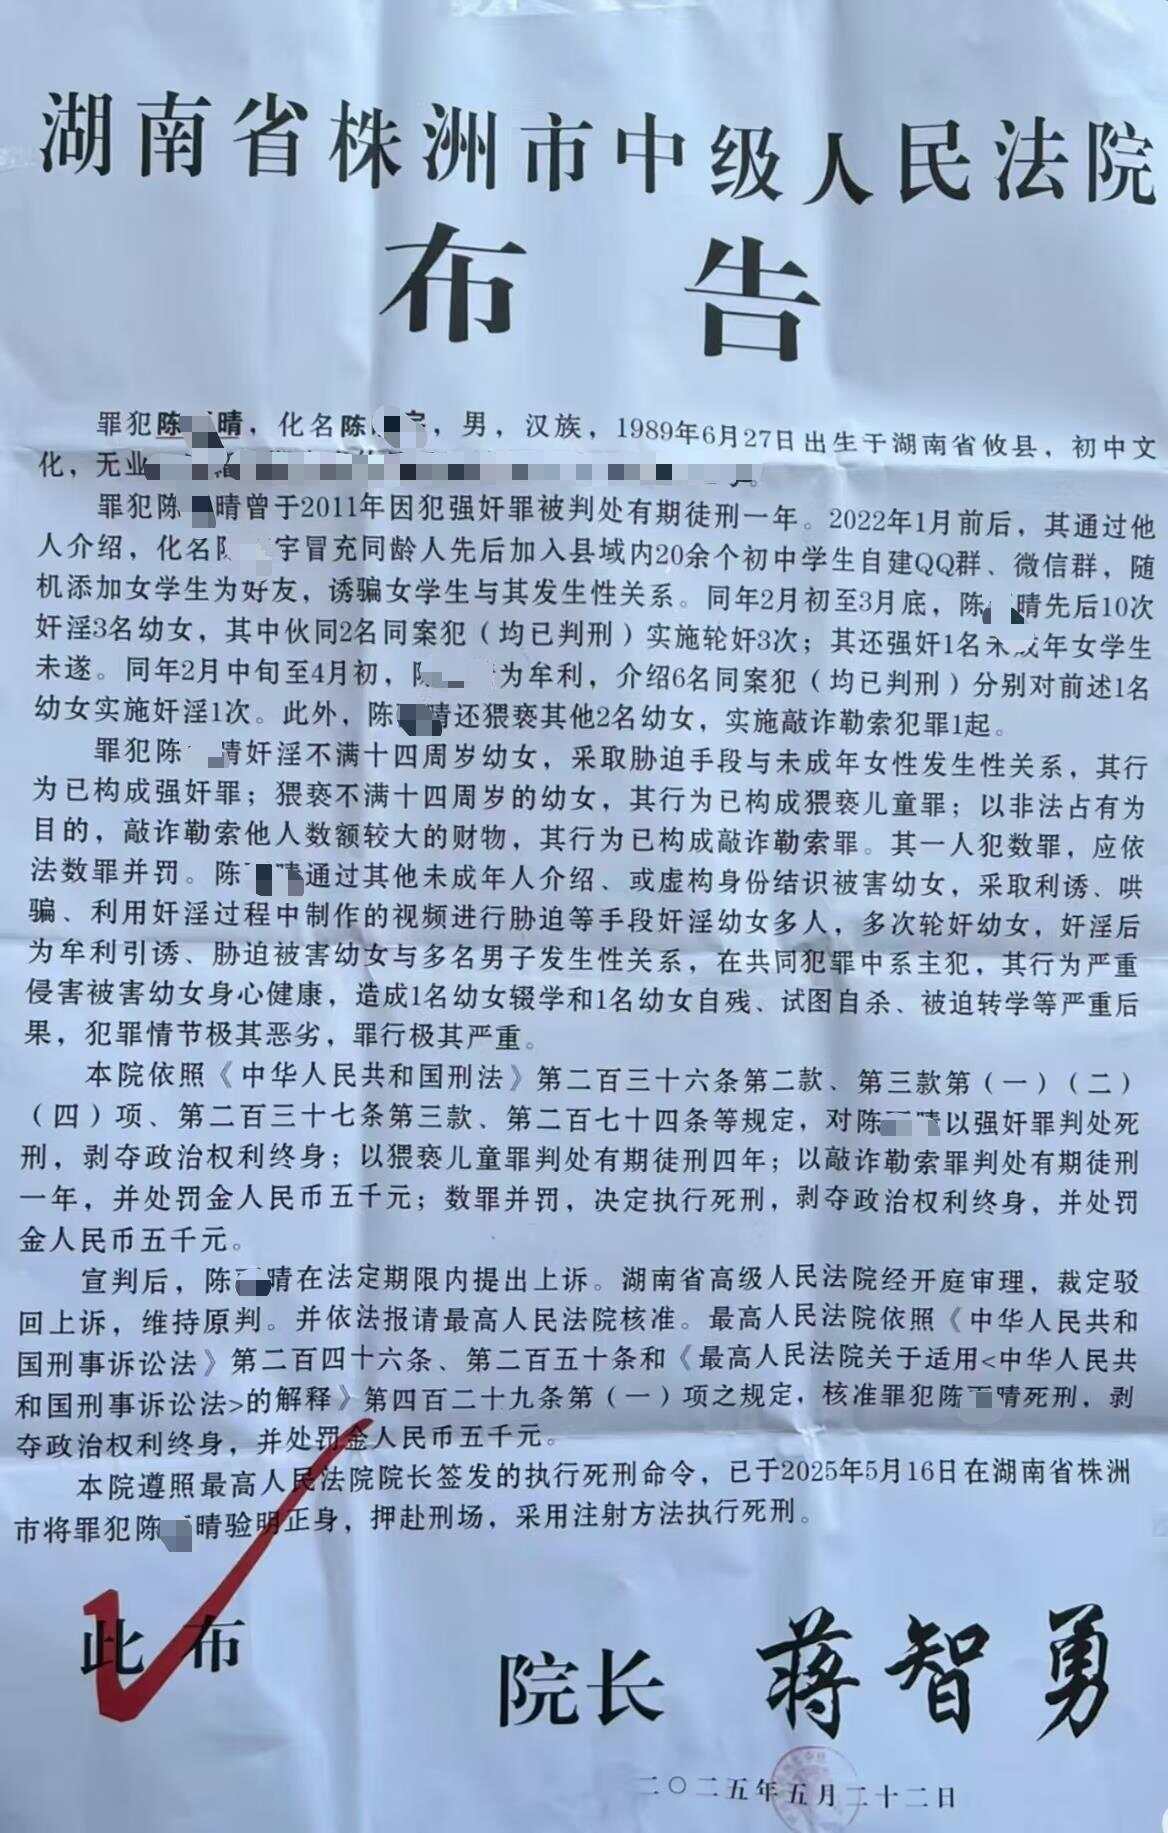 湖南省株洲市中级人民法院
布告
罪犯陈 晴，化名陈 ，男，汉族，1989年6月27日出生于湖南省攸县，初中文
化，无业 。
罪犯陈 晴曾于2011年因犯强奸罪被判处有期徒刑一年。2022年1月前后，其通过他
人介绍，化名 宇冒充同龄人先后加入县域内20余个初中学生自建QQ群、微信群，随
机添加女学生为好友，诱骗女学生与其发生性关系。同年2月初至3月底，陈 晴先后10次
奸淫3名幼女，其中伙同2名同案犯（均已判刑）实施轮奸3次；其还强奸1名未成年女学生
未遂。同年2月中旬至4月初， 为牟利，介绍6名同案犯（均已判刑）分别对前述1名
幼女实施奸淫1次。此外，陈 晴还猥亵其他2名幼女，实施敲诈勒索犯罪1起。
罪犯陈 晴奸淫不满十四周岁幼女，采取胁迫手段与未成年女性发生性关系，其行
为已构成强奸罪；猥亵不满十四周岁的幼女，其行为已构成猥亵儿童罪；以非法占有为
目的，敲诈勒索他人数额较大的财物，其行为已构成敲诈勒索罪。其一人犯数罪，应依
法数罪并罚。陈 通过其他未成年人介绍、或虚构身份结识被害幼女，采取利诱、哄
骗、利用奸淫过程中制作的视频进行胁迫等手段奸淫幼女多人，多次轮奸幼女，奸淫后
为牟利引诱、胁迫被害幼女与多名男子发生性关系，在共同犯罪中系主犯，其行为严重
侵害被害幼女身心健康，造成1名幼女辍学和1名幼女自残、试图自杀、被迫转学等严重后
果，犯罪情节极其恶劣，罪行极其严重。
本院依照《中华人民共和国刑法》第二百三十六条第二款、第三款第（一）（二）
（四）项、第二百三十七条第三款、第二百七十四条等规定，对陈 以强奸罪判处死
刑，剥夺政治权利终身；以猥亵儿童罪判处有期徒刑四年；以敲诈勒索罪判处有期徒刑
一年，并处罚金人民币五千元；数罪并罚，决定执行死刑，剥夺政治权利终身，并处罚
金人民币五千元。
宣判后，陈 晴在法定期限内提出上诉。湖南省高级人民法院经开庭审理，裁定驳
回上诉，维持原判。并依法报请最高人民法院核准。最高人民法院依照《中华人民共和
国刑事诉讼法》第二百四十六条、第二百五十条和《最高人民法院关于适用<中华人民共
和国刑事诉讼法>的解释》第四百二十九条第（一）项之规定，核准罪犯陈 晴死刑，剥
夺政治权利终身，并处罚金人民币五千元。
本院遵照最高人民法院院长签发的执行死刑命令，已于2025年5月16日在湖南省株洲
市将罪犯陈 晴验明正身，押赴刑场，采用注射方法执行死刑。
此布
院长 蒋智勇
二〇二五年五月二十二日